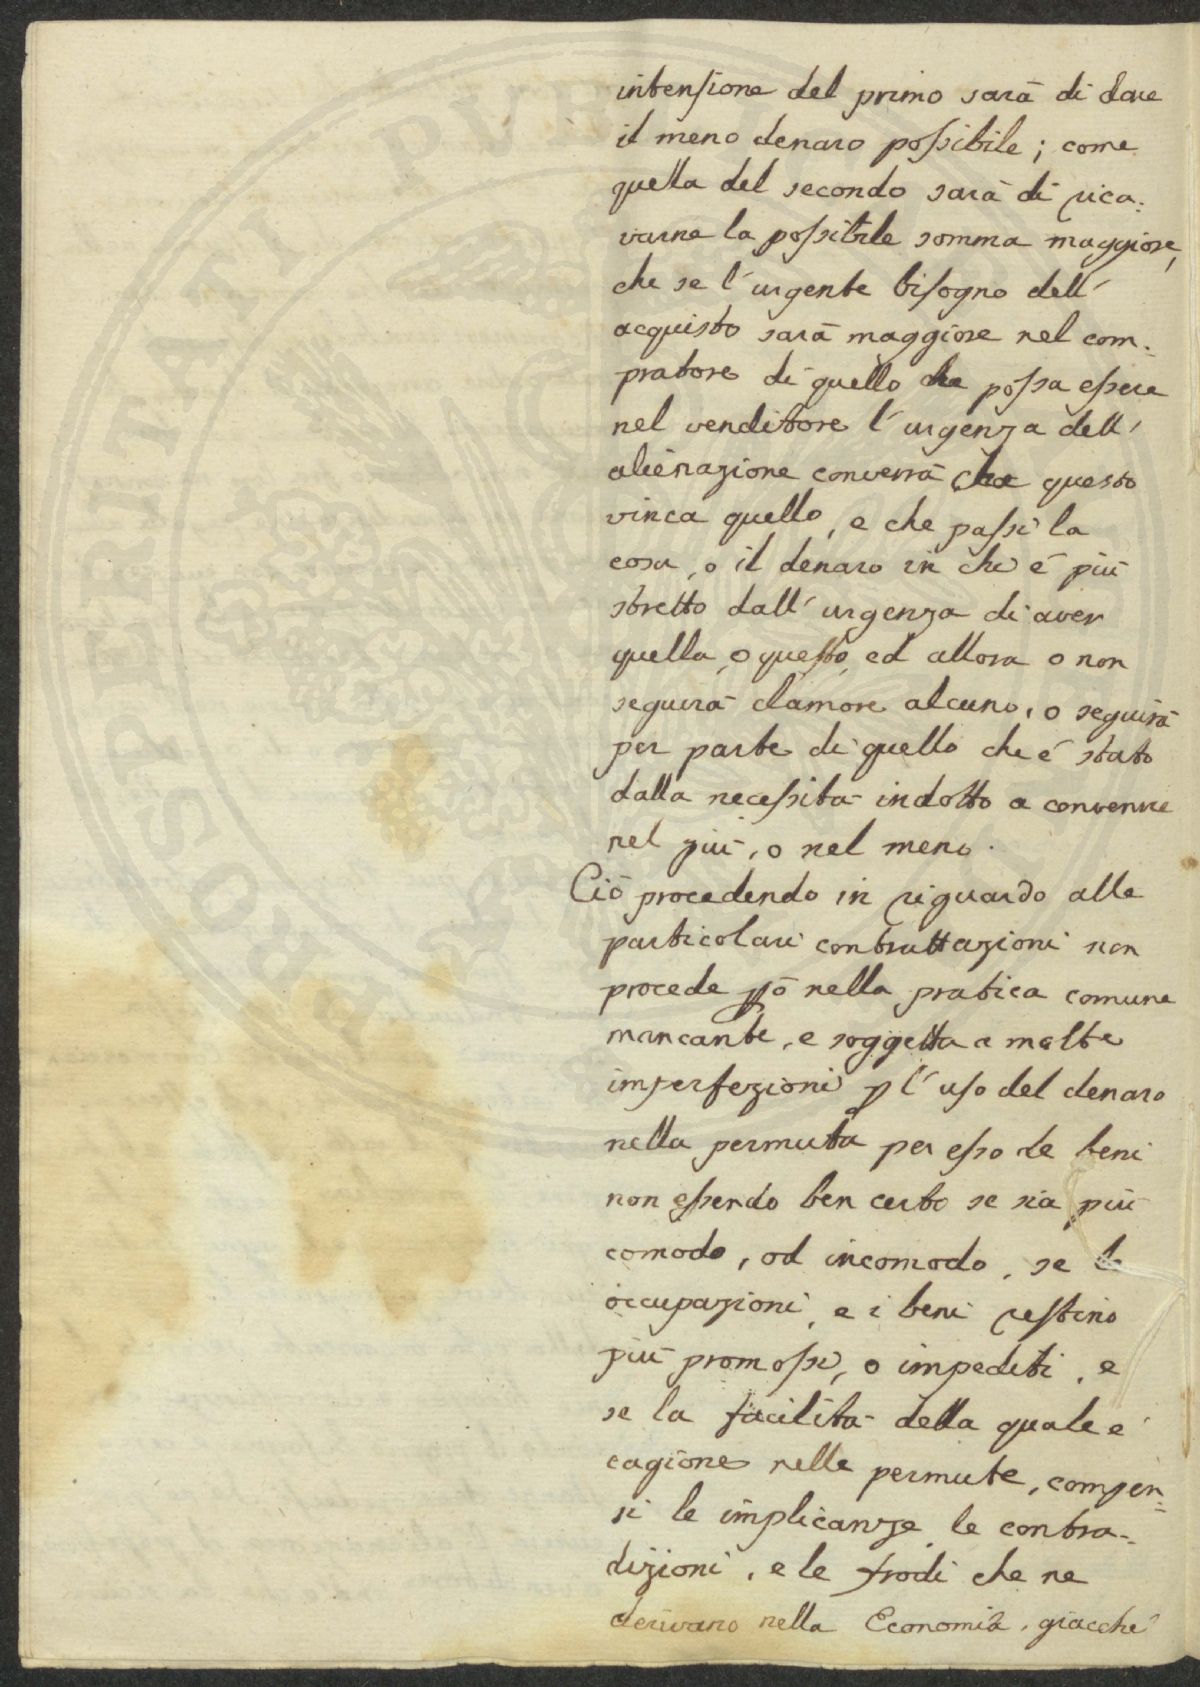 intensione del primo sarà di dare
il meno denaro possibile; come
quella del secondo sarà di rica-
varne la possibile somma maggiore,
che se l'urgente bisogno dell'
acquisto sarà maggiore nel com-
pratore di quello che possa essere
nel venditore l'urgenza dell'
alienazione converrà che questo
vinca quello, e che passi la
cosa, o il denaro in chi è più
stretto dall'urgenza di aver
quella, o questo, ed allora o non
seguirà clamore alcuno, o seguirà
per parte di quello che è stato
dalla necessità indotto a convenire
nel più, o nel meno.
Ciò procedendo in riguardo alle
particolari contrattazioni non
procede pò nella pratica comune
mancante, e soggetta a molte
imperfezioni p l'uso del denaro
nella permuta per esso de beni
non essendo ben certo se sia più
comodo, od incomodo, se le
occupazioni, e i beni restino
più promossi, o impediti, e
se la facilità della quale è
cagione nelle permute, compen-
si le implicanze, le contra-
dizioni, e le frodi che ne
derivano nella Economia, giacchè